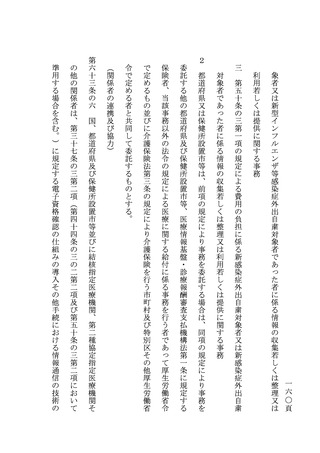 一六〇頁
象者又は新型インフルエンザ等感染症外出自粛対象者であった者に係る情報の収集若しくは整理又は
利用若しくは提供に関する事務
三　第五十条の三第一項の規定による費用の負担に係る新感染症外出自粛対象者又は新感染症外出自粛
対象者であった者に係る情報の収集若しくは整理又は利用若しくは提供に関する事務
２　都道府県又は保健所設置市等は、前項の規定により事務を委託する場合は、同項の規定により事務を
委託する他の都道府県及び保健所設置市等、医療情報基盤・診療報酬審査支払機構法第一条に規定する
保険者、当該事務以外の法令の規定による医療に関する給付に係る事務を行う者であって厚生労働省令
で定めるもの並びに介護保険法第三条の規定により介護保険を行う市町村及び特別区その他厚生労働省
令で定める者と共同して委託するものとする。
（関係者の連携及び協力）
第六十三条の六　国、都道府県及び保健所設置市等並びに結核指定医療機関、第二種協定指定医療機関そ
の他の関係者は、第三十七条の三第二項（第四十四条の三の二第二項及び第五十条の三第二項において
準用する場合を含む。）に規定する電子資格確認の仕組みの導入その他手続における情報通信の技術の